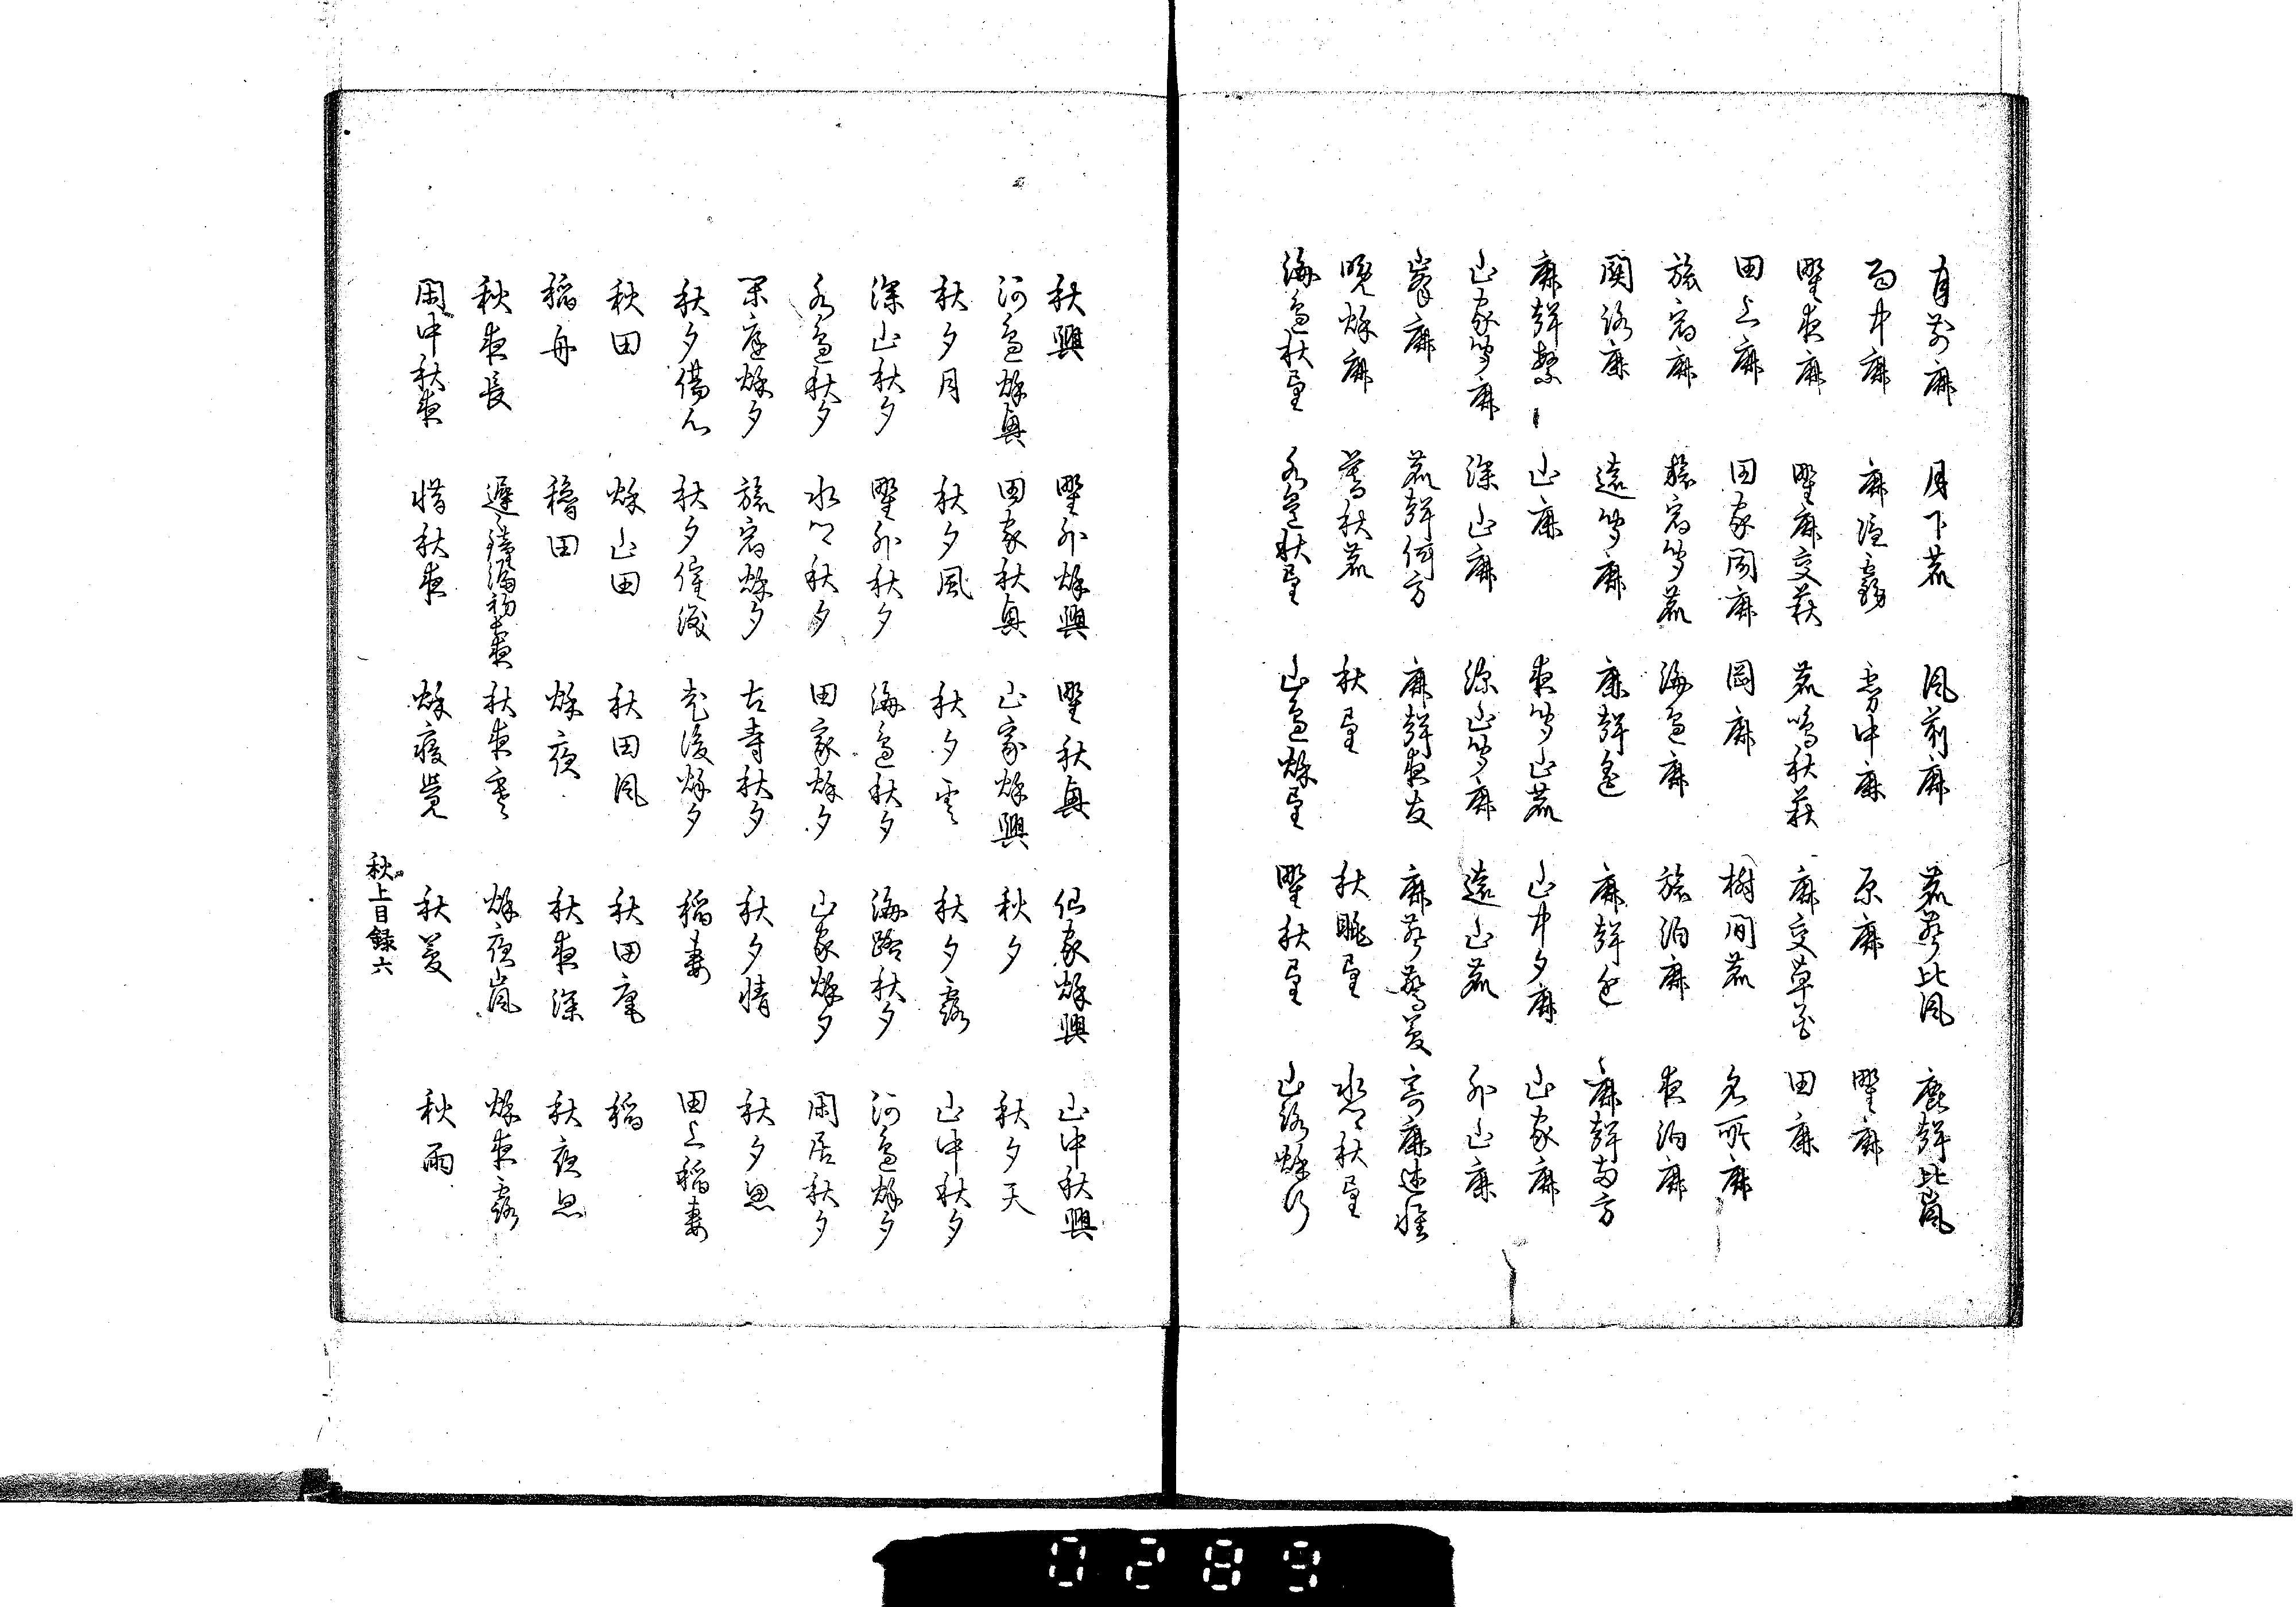 月前鹿 月下鹿 風前鹿 鹿声比風 鹿声比嵐
雨中鹿 鹿隔霧 霧中鹿 原鹿 野鹿
野夜鹿 野鹿交萩 鹿鳴秋萩 鹿交草花 田鹿
田上鹿 田家聞鹿 岡鹿 樹間鹿 名所鹿
旅宿鹿 旅宿聞鹿 海辺鹿 旅泊鹿 夜泊鹿
関路鹿 遠聞鹿 鹿声遠 鹿声近 鹿声両方
鹿声繁 山鹿 夜聞山鹿 山中夕鹿 山家鹿
山家聞鹿 深山鹿 深山聞鹿 遠山鹿 外山鹿
峯鹿 鹿声何方 鹿声夜友 鹿声驚夢 寄鹿述懐
晩秋鹿 暮秋鹿 秋望 秋眺望 水郷秋望
海辺秋望 水辺秋望 山辺秋望 野秋望 山路秋行
秋興 野外秋興 野秋興 仙家秋興 山中秋興
河辺秋興 田家秋興 山家秋興 秋夕 秋夕天
秋夕月 秋夕風 秋夕雲 秋夕露 山中秋夕
深山秋夕 野外秋夕 海辺秋夕 海路秋夕 河辺秋夕
水辺秋夕 水郷秋夕 田家秋夕 山家秋夕 閑居秋夕
閑庭秋夕 旅宿秋夕 古寺秋夕 秋夕情 秋夕思
秋夕傷心 秋夕催涙 老後秋夕 稲妻 田上稲妻
秋田 秋山田 秋田風 秋田庵 稲
稲舟 穭田 秋夜 秋夜深 秋夜思
秋夜長 遅々鐘漏初長夜 秋夜雲 秋夜嵐 秋夜露
閑中秋夜 惜秋夜 秋寝覚 秋夢 秋雨
秋上目録六
0289